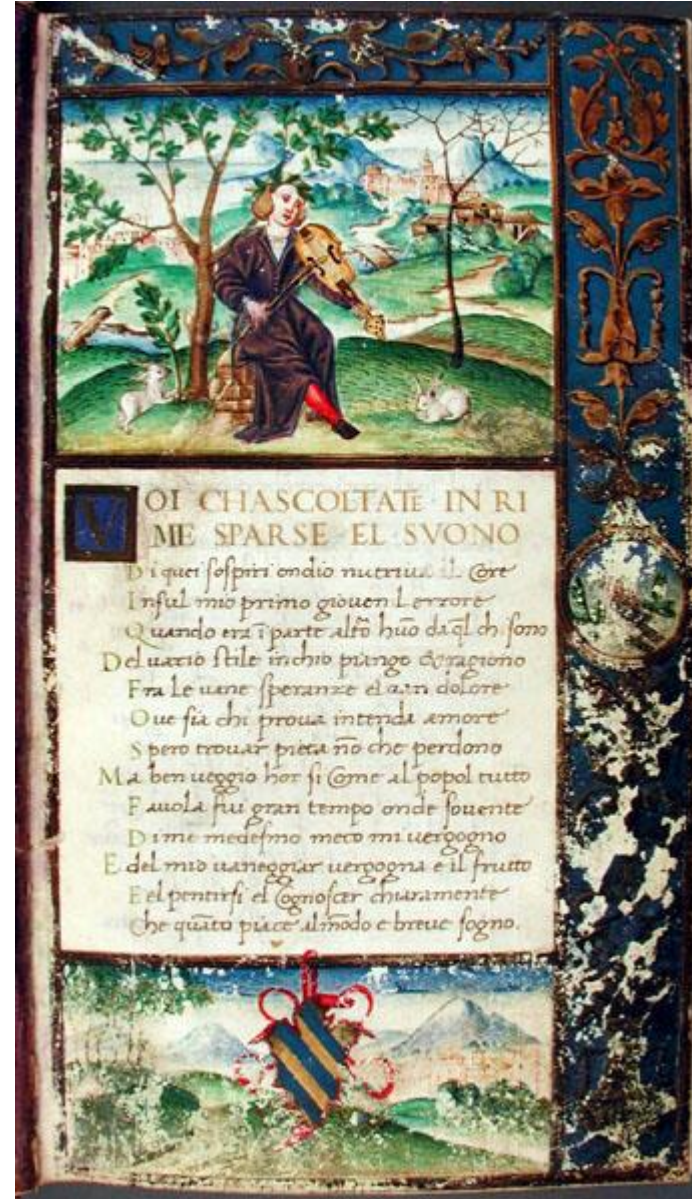 VOI CHASCOLTATE IN RI
ME SPARSE EL SVONO
Di quei sospiri ondio nutriva il Core
In sul mio primo giovenil errore
Quando era ī parte altō huō da ql ch sono
Del vario stile inchio piango & ragiono
Fra le vane speranze el van dolore
Ove sia chi prova intenda amore
Spero trovar pieta nō che perdono
Ma ben veggio hor si Come al popol tutto
Favola fui gran tempo onde sovente
Di me medesmo meco mi vergogno
E del mio vaneggiar vergogna e il frutto
E el pentirsi el Cognoscer chiaramente
Che quāto piace al mōdo e breve sogno.